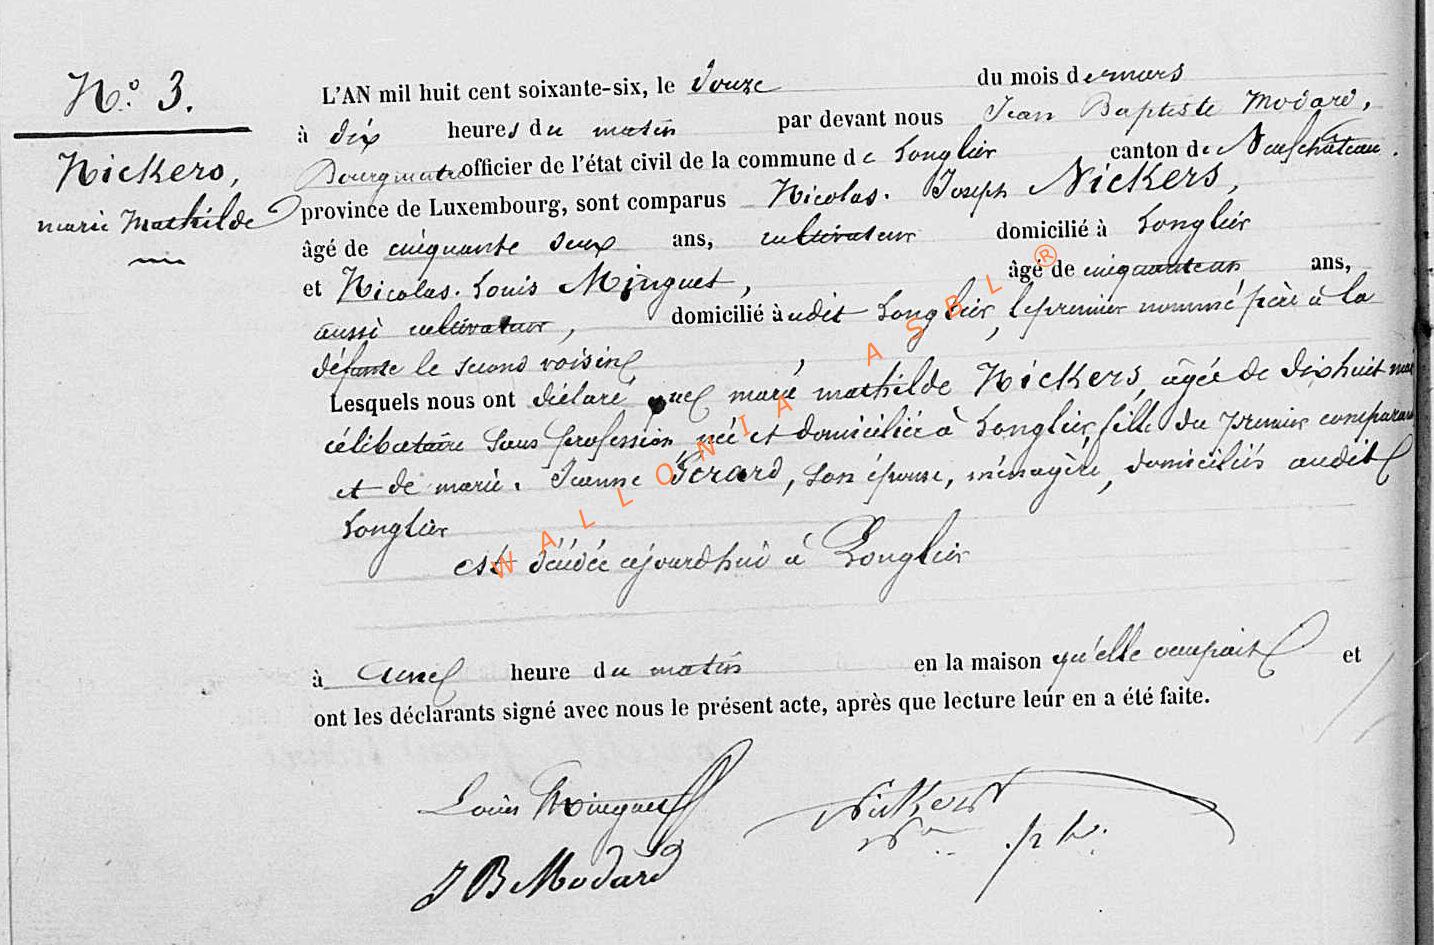 N.o 3.
Nickers,
marie Mathilde
L'AN mil huit cent soixante-six, le Douze du mois de mars
à dix heures du matin par devant nous Jean Baptiste Modard,
Bourgmestre officier de l'état civil de la commune de Longlier canton de Neufchâteau.
province de Luxembourg, sont comparus Nicolas. Joseph Nickers,
âgé de cinquante deux ans, cultivateur domicilié à Longlier
et Nicolas. Louis Minguet, âgé de cinquante un ans,
aussi cultivateur, domicilié à udit Longlier, le premier nommé père à la
défunte le second voisin
Lesquels nous ont déclaré que marie mathilde Nickers, âgée de dixhuit
célibataire sans profession née et domiciliée à Longlier, fille du premier comparant
et de marie. Jeanne Gérard, son épouse, ménagère, domiciliés audit
Longlier
est décédée ajourdhui à Longlier
à une heure du matin en la maison qu'elle occupait et
ont les déclarants signé avec nous le présent acte, après que lecture leur en a été faite.
Louis Minguet Nickers
N J ph.
J B Modard
WALLONIA ASBL ®